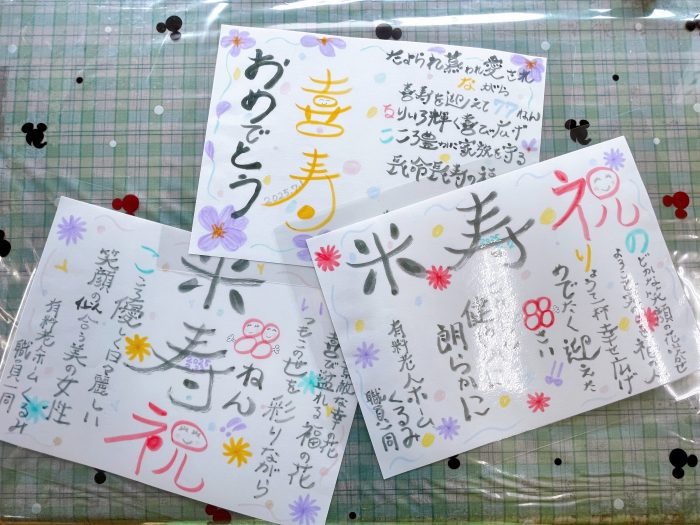 おめでとう
喜寿
2025.7
たよられ慕われ愛され
ながら
喜寿を迎えて77ねん
なりいろ輝く喜び広げ
こころ豊かに家族を守る
長命長寿の福
祝
米寿
のどかな笑顔の花
りょうて一杯幸せ広げ
めでたく迎えた
88さい
健
朗らかに
有料老人ホーム
くるみ
職員一同
祝
米寿
2025
い
幸の花
喜び溢れる福の花
いつもこの世を彩りながら
88ねん
こころ優しく日々麗しい
笑顔の似合う美の女性
有料老人ホームくるみ
職員一同